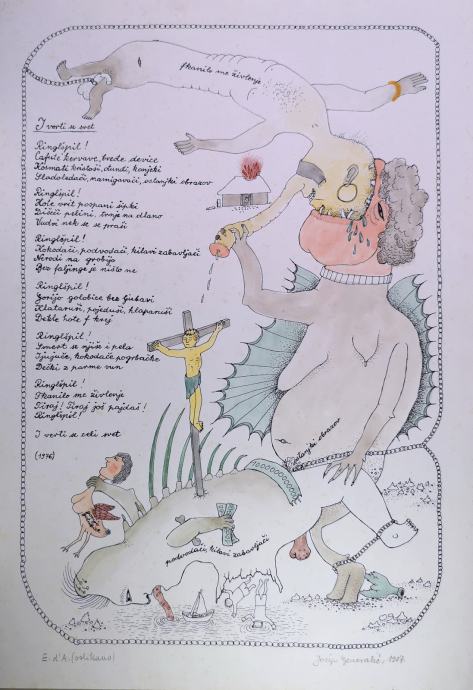 fkanilo me živlenje
I verti se svet
Ringlšpil!
Cafute kervave, brede device
Kosmati kristoši, dundi, konjeki
Sladoledači, namigavači, satanjski obrazov
Ringlšpil!
Hole vrit pospani šipki
Ziščeš pelini, treje na dlano
Vudri nek se se praši
Ringlšpil!
Kokodači, podvodači, kilavi zabavljači
Nerodi na grobijo
Brez falinge je ništo ne
Ringlšpil!
Gorijo golobice bez ljubavi
Klatаruši, pojeduši, hlaparuši
Dekle hote f kraj
Ringlšpil!
Smert se njiše i pela
Gjuguče, kokodače pogrbačke
Dečki z parme vun
Ringlšpil!
Fkanilo me živlenje
Tiraj! Tiraj još pajdaš!
Ringlšpil!
I verti se celi svet
(1976)
satanjski obrazov
podvodači, kilavi zabavljači
E. d'A. (oslikano)
Josip Generalić 1987.